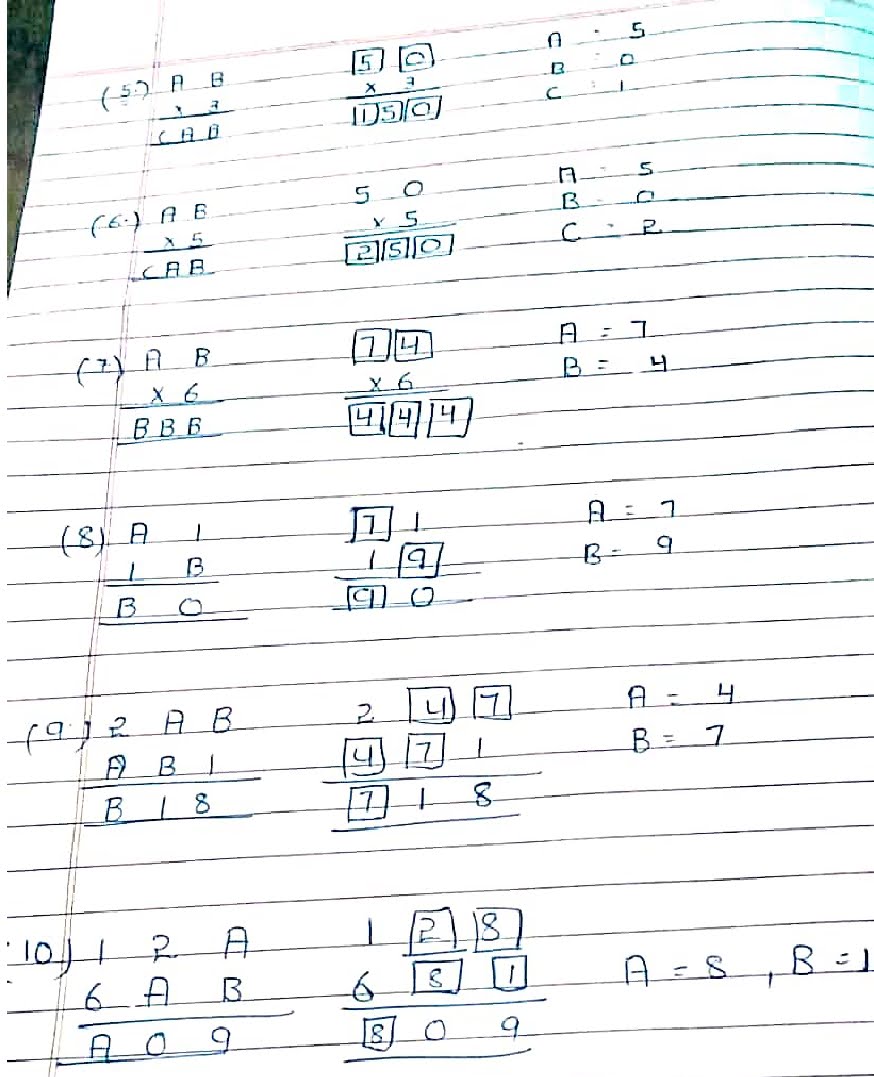 (5.) A B 5 0 A : 5
x 3 x 3 B : 0
C A B 1 5 0 C : 1
(6.) A B 5 0 A - 5
x 5 x 5 B - 0
C A B 2 5 0 C : 2
(7.) A B 7 4 A = 7
x 6 x 6 B = 4
B B B 4 4 4
(8) A 1 7 1 A = 7
1 B 1 9 B - 9
B 0 9 0
(9.) 2 A B 2 4 7 A = 4
A B 1 4 7 1 B = 7
B 1 8 7 1 8
10) 1 2 A 1 2 8
6 A B 6 8 1 A = 8 , B = 1
A 0 9 8 0 9